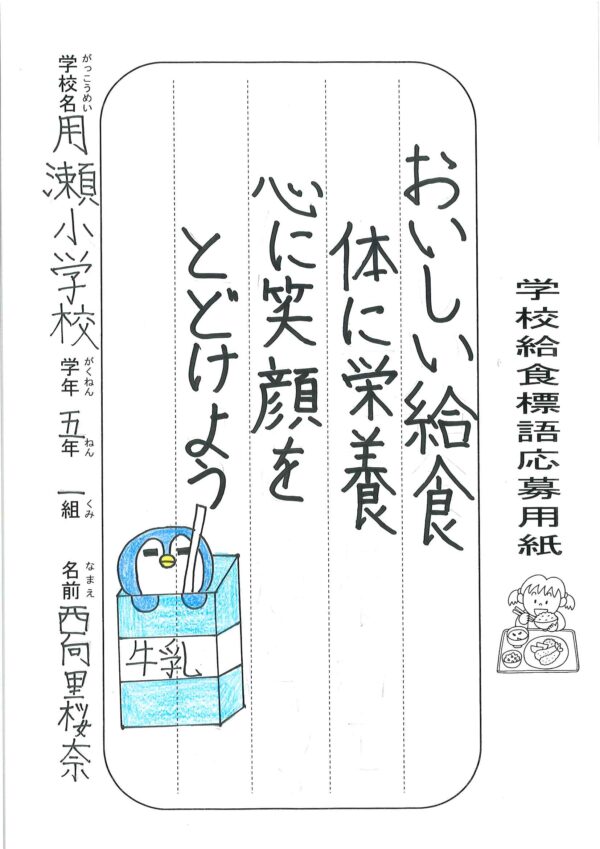 学校給食標語応募用紙
おいしい給食
体に栄養
心に笑顔を
とどけよう
牛乳
学校名 用瀬小学校 学年 五年 一組 名前 西向里桜奈
がっこうめい がくねん ねん くみ なまえ